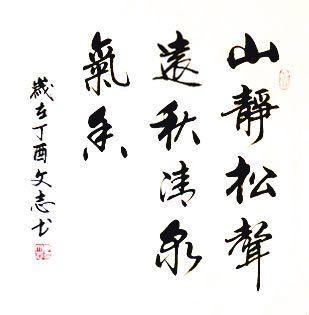 山靜松聲
遠秋清泉
氣香
歲在丁酉文志书